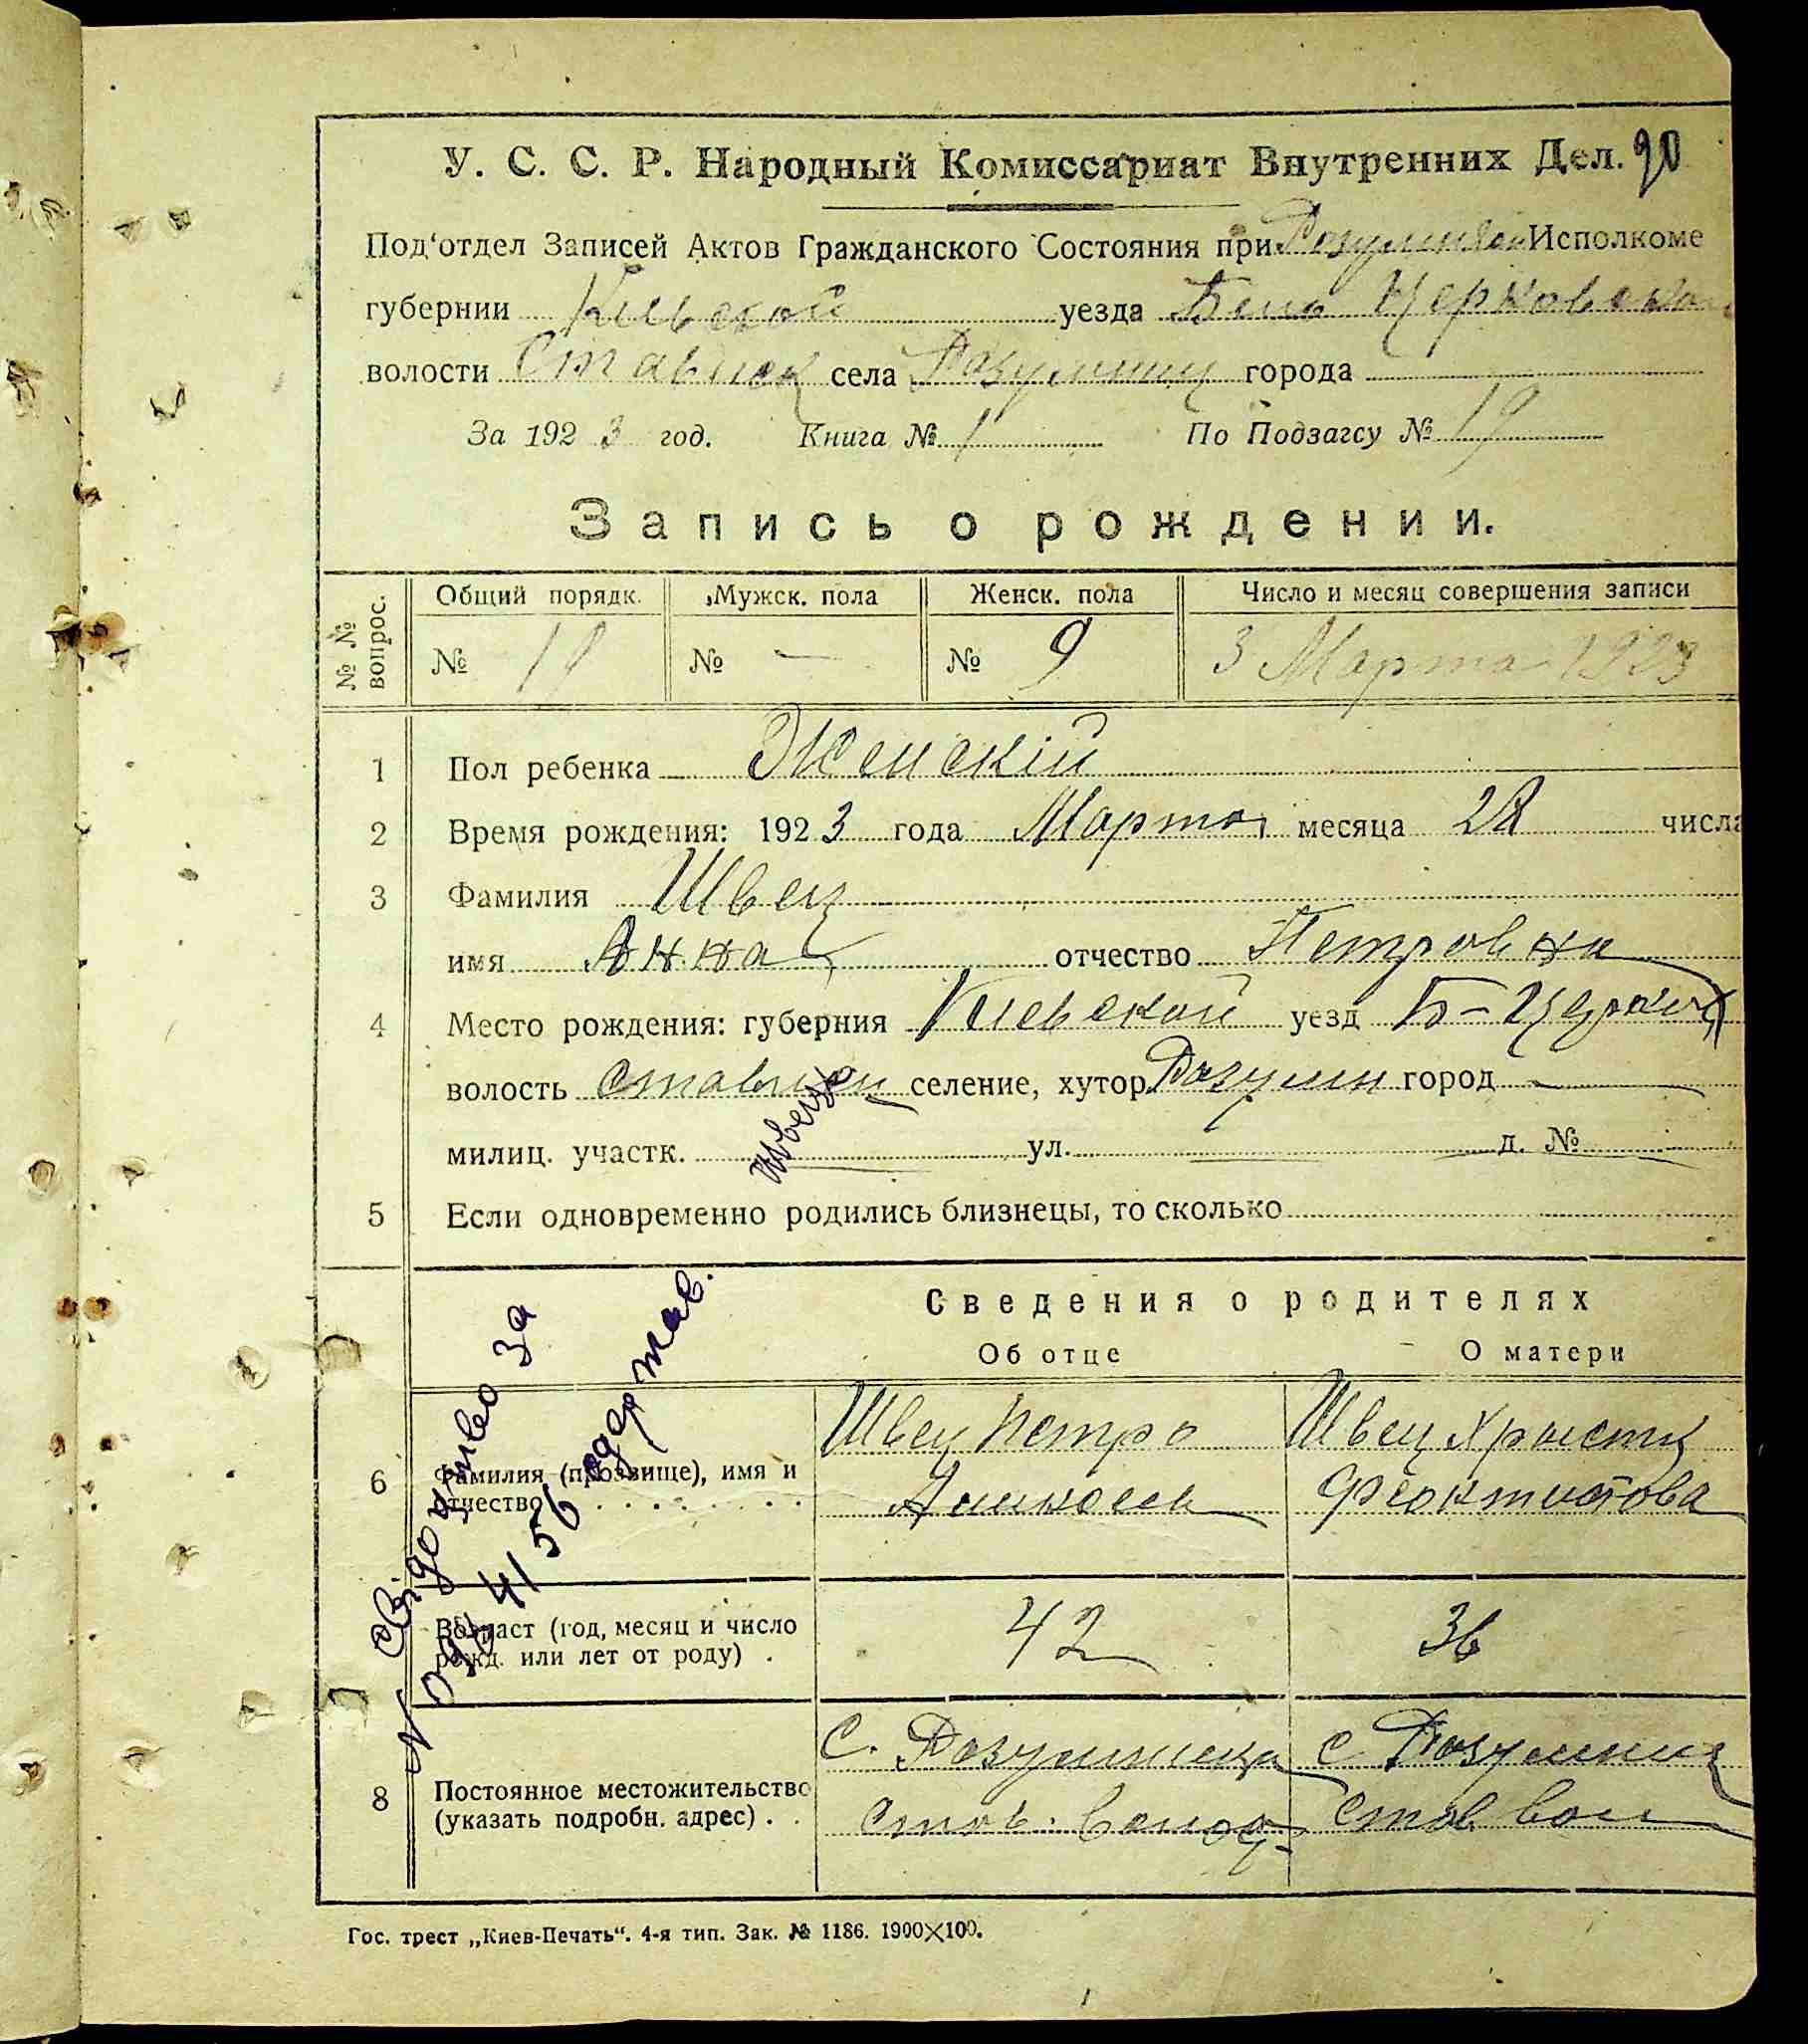 У. С. С. Р. Народный Комиссариат Внутренних Дел. 90
Под'отдел Записей Актов Гражданского Состояния при Исполкоме
губернии Киевской уезда Бело Церковской
волости Стависк села города
За 1923 год. Книга № 1 По Подзагсу № 19
Запись о рождении.
№ № вопрос. Общий порядк. Мужск. пола Женск. пола Число и месяц совершения записи
№ 19 № — № 9 3 Марта 1923
1 Пол ребенка Женскій
2 Время рождения: 1923 года Марта месяца числа
3 Фамилия Швец
имя Анна отчество Петровна
4 Место рождения: губерния Киевской уезд Б-Церков
волость селение, хутор Разумн город —
милиц. участк. ул. д. №
Швец
5 Если одновременно родились близнецы, то сколько
Сведения о родителях
Об отце О матери
6 Фамилия (прозвище), имя и отчество
Швец Петро
Швец Христя Феоктистова
Возраст (год, месяц и число рожд. или лет от роду) . 42 36
8 Постоянное местожительство (указать подробн. адрес) . .
С. Став.
с. Став вол
Свідоцтво за
4156 одержав.
Гос. трест „Киев-Печать“. 4-я тип. Зак. № 1186. 1900×100.